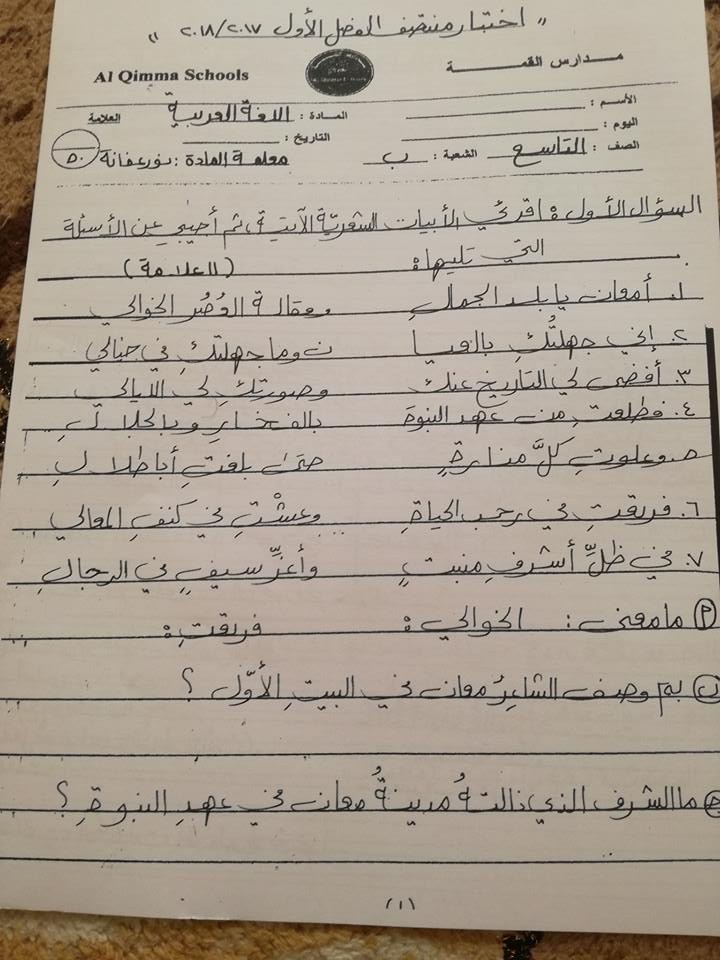 " اختبار منتصف الفصل الأول ٢٠١٧/٢٠١٨ "
مدارس القمة
Al Qimma Schools
الأسم : المادة : اللغة العربية العلامة
اليوم : التاريخ :
الصف : التاسع الشعبة : ب معلمة المادة : نور عفانة ٥٠
السؤال الأول : اقرئي الأبيات الشعريّة الآتية ، ثم أجيبي عن الأسئلة
التي تليها : (العلامة)
١. أمعان يا بلد الجمال ومقالة العُصُر الخوالي
٢. إني جهلتُكِ بالعيا ن وما جهلتكِ في خيالي
٣. أفضى لي التاريخ عنك وصورتكِ لي الليالي
٤. فطلعتِ من عهد النبوة بالفخارِ وبالجلالِ
٥. وعلوتِ كلَّ منارةٍ حتى بلغتِ أباطلالِ
٦. فربقتِ في رحب الحياةِ وعشْتِ في كنفِ المعالي
٧. في ظلِّ أشرفِ منبتٍ وأعزِّ سيفٍ في الرجالِ
أ) ما معنى : الخوالي : فربقتِ :
ب) بم وصف الشاعرُ معان في البيتِ الأوّل ؟
ج) ما الشرف الذي نالتهُ مدينةُ معان في عهدِ النبوةِ ؟
(١)